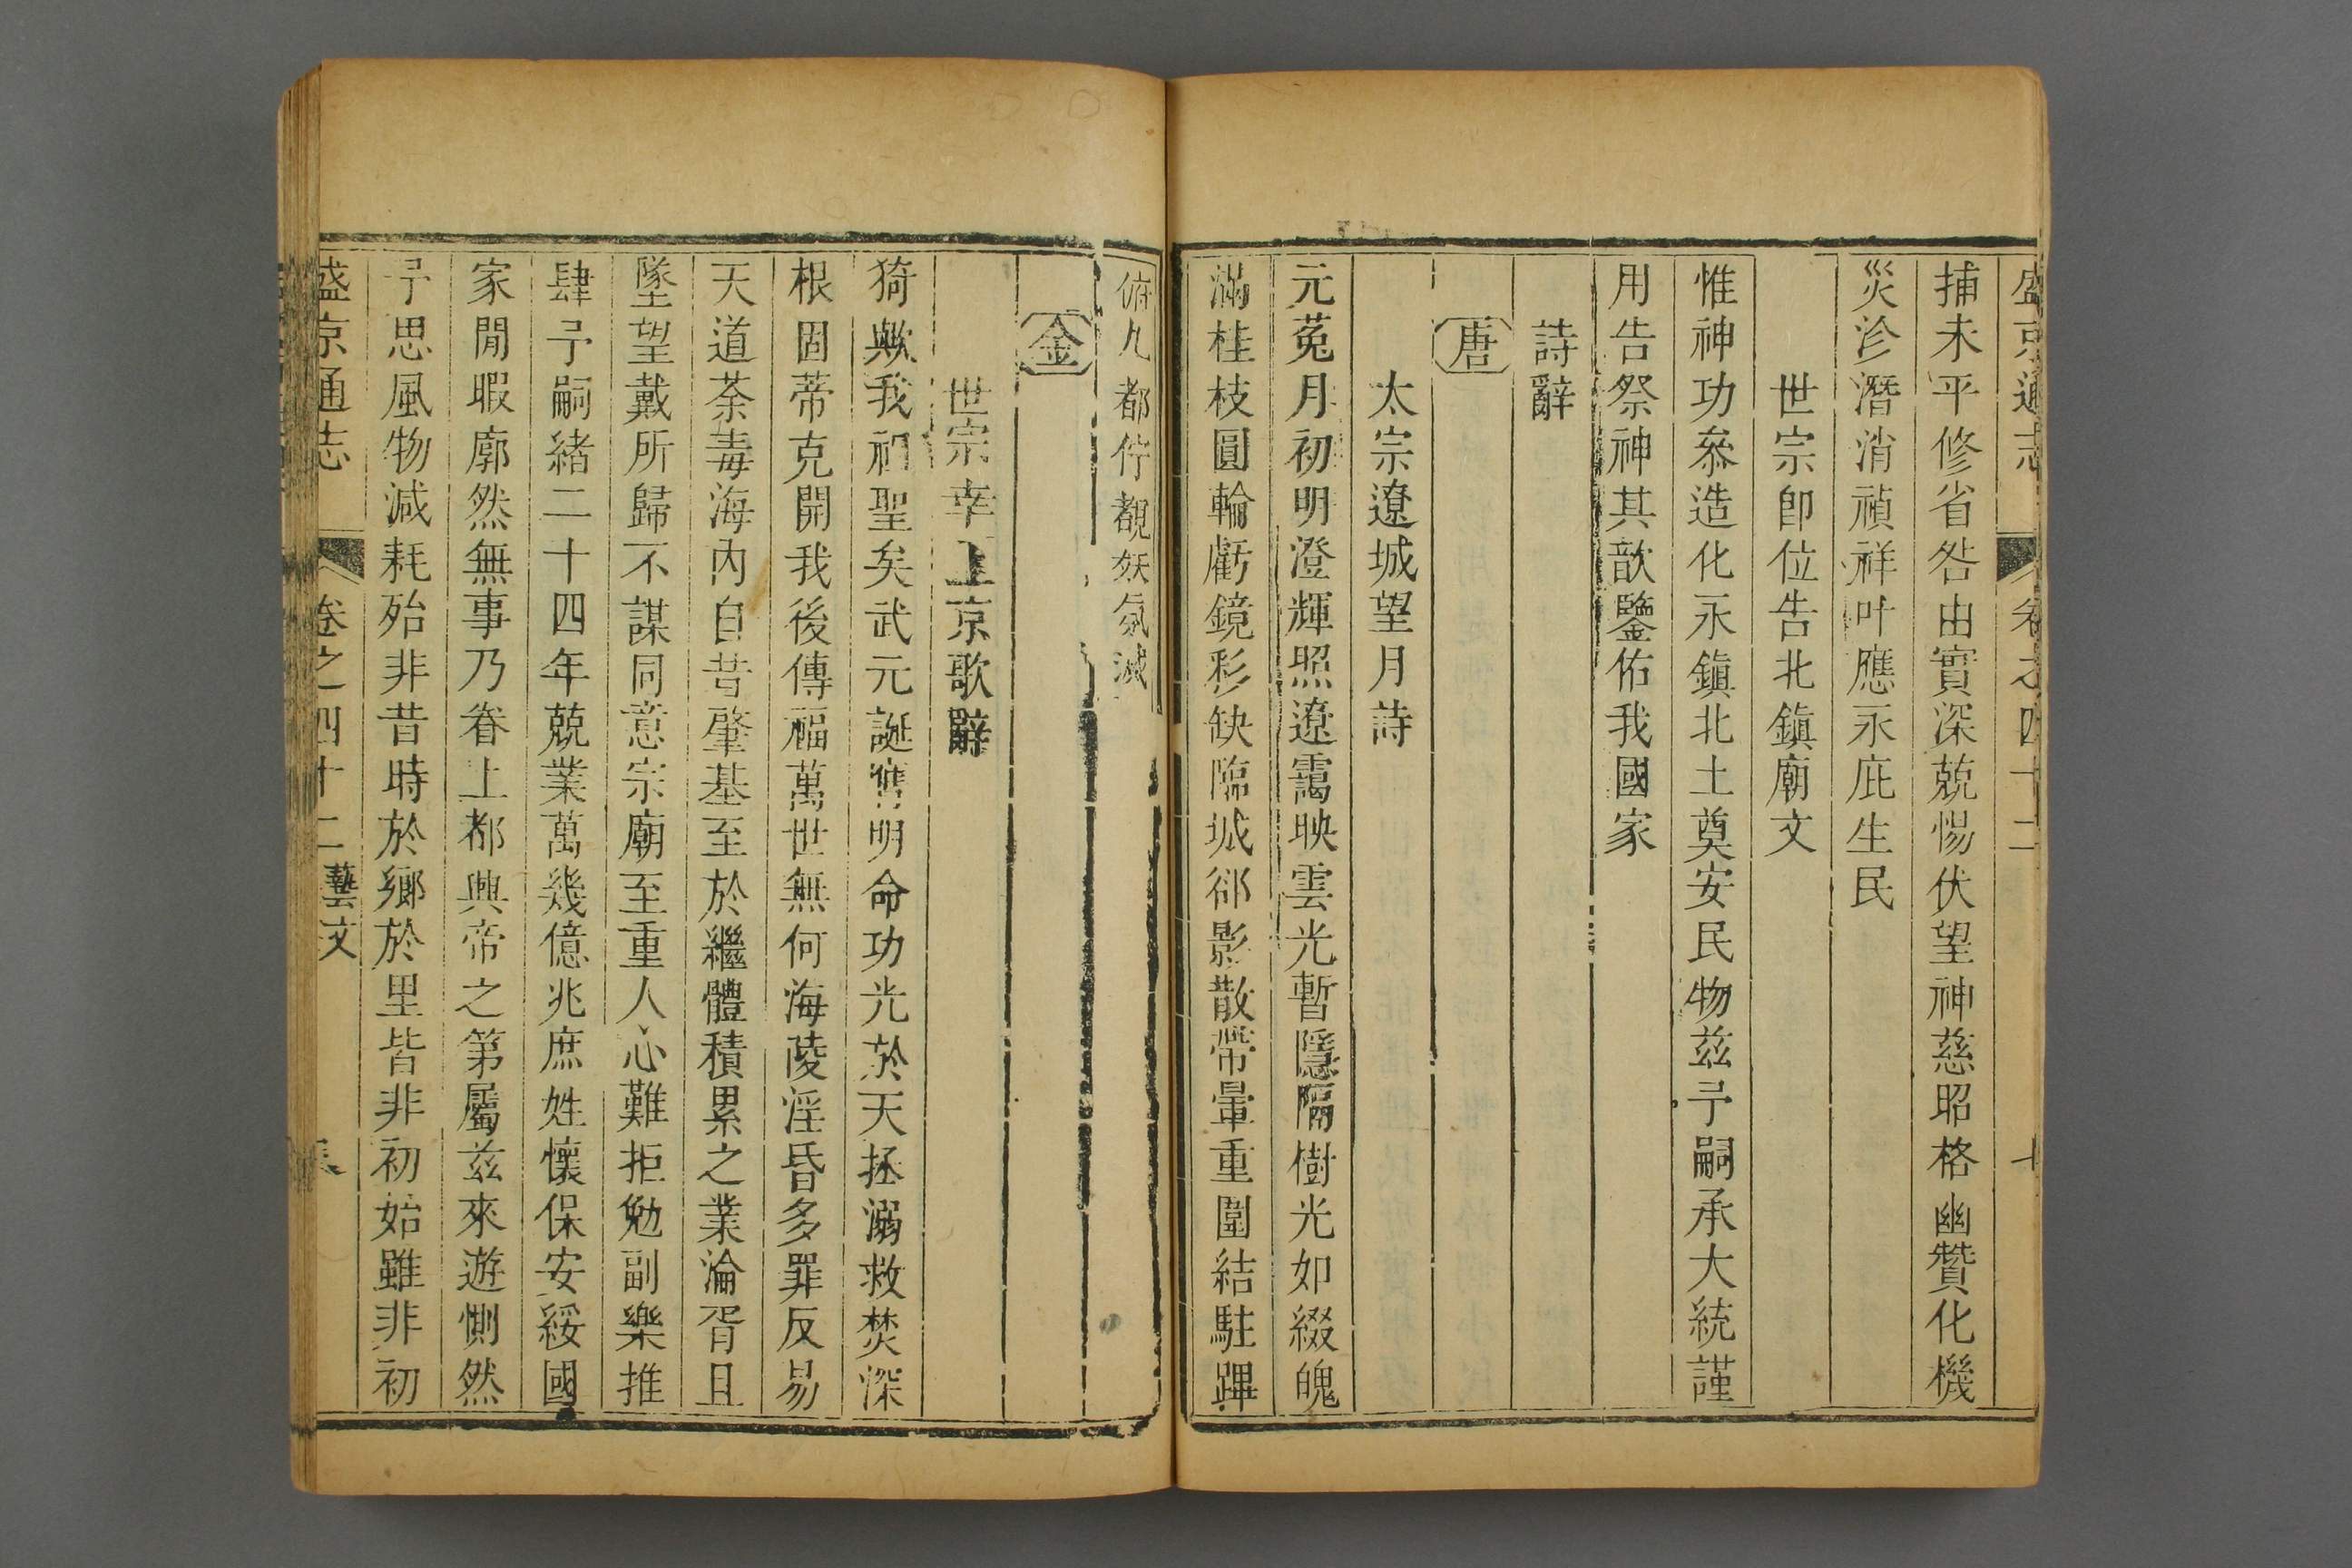 盛京通志 卷之四十二
捕未平修省咎由實深兢惕伏望神慈昭格幽贊化機
災沴潛消禎祥叶應永庇生民
世宗卽位告北鎮廟文
惟神功叅造化永鎮北土奠安民物茲予嗣承大統謹
用告祭神其歆鑒佑我國家
詩辭
唐
太宗遼城望月詩
元菟月初明澄輝照遼靄映雲光暫隱隔樹光如綴魄
滿桂枝圓輪虧鏡彩缺臨城郤影散帶暈重圍結駐蹕
俯九都佇覩妖氛滅
金
世宗幸上京歌辭
猗歟我祖聖矣武元誕膺明命功光於天拯溺救焚深
根固蒂克開我後傳福萬世無何海陵淫昏多罪反易
天道荼毒海內自昔肇基至於繼體積累之業淪胥且
墜望戴所歸不謀同意宗廟至重人心難拒勉副樂推
肆予嗣緒二十四年兢業萬幾億兆庶姓懷保安綏國
家閒暇廓然無事乃眷上都興帝之第屬茲來遊惻然
予思風物減耗殆非昔時於鄉於里皆非初始雖非初
盛京通志 卷之四十二 藝文